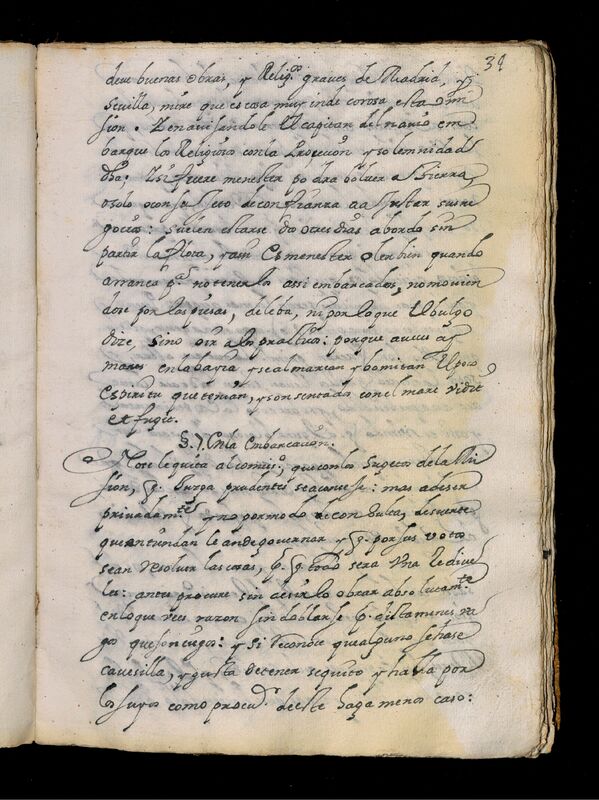 39
deve buenas obras, y Relig.os graves de Madrid, y
sevilla, mire que es cosa muy indecorosa esta omi
sion. Y en avisandole el capitan del navio em
barque los Religiosos con la Procecion y solemnidad
dha; y si fuere menester podra bolver a tierra,
o solo o con sujeto de confianza a ajustar sus ne
gocios: suelen estarse dos o tres dias a bordo sin
partir la flota, y assi es menester oler bien quando
arranca p.a no tenerlos assi embarcados, no movien
dose por las piesas, de leba, ni por lo que el bulgo
dize, sino oir a los practicos: porque a veces ay
mares en la baya y se almarean y bomitan el poco
espiritu que tenian, y son sentados con el mare vidit
et fugit.
§. 7. En la Embarcacion.
No se le quita al comis.o, que con los sugetos de la Mi
sion, q. Juzga prudentes se aconseje: mas a de ser
privadam.te y no por modo de consulta, de suerte
que entiendan le an de governar y q. por sus votos
sean resolver las cosas, p. q. todo sera una
les: antes procure sin desirlo obrar absolutam.te
en lo que ves razon sin doblarse p. dictamines va
gos que son cugos: y si reconoce que alguno se hase
cavesilla, y gusta de tener sequito y habla por
los suyos como procu.r de este haga menos caso: